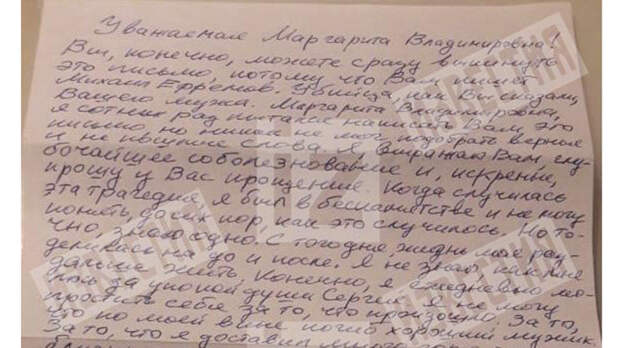 Уважаемая Маргарита Владимировна!
Вы, конечно, можете сразу выкинуть
это письмо, потому что Вам пишет
Михаил Ефремов. Убийца, как Вы сказали,
Вашего мужа. Маргарита Владимировна,
я сотни раз пытался написать Вам это
письмо, но никак не мог подобрать верные
и не пошлые слова. Я, выражаю Вам, глу-
бочайшее соболезнование и, искренне,
прошу у Вас прощения. Когда случилась
эта трагедия, я был в беспамятстве и не могу
понять, до сих пор, как это случилось. Но то-
чно, знаю одно. С того дня, жизнь моя раз-
делилась на до и после. Я не знаю, как мне
дальше жить. Конечно, я ежедневно мо-
люсь за упокой души Сергея. Я не могу
простить себя за то, что произошло. За то,
что по моей вине погиб хороший мужик.
За то, что я доставил много
ИЗВЕСТИЯ
ИЗВЕСТИЯ
ИЗВЕСТИЯ
IZ